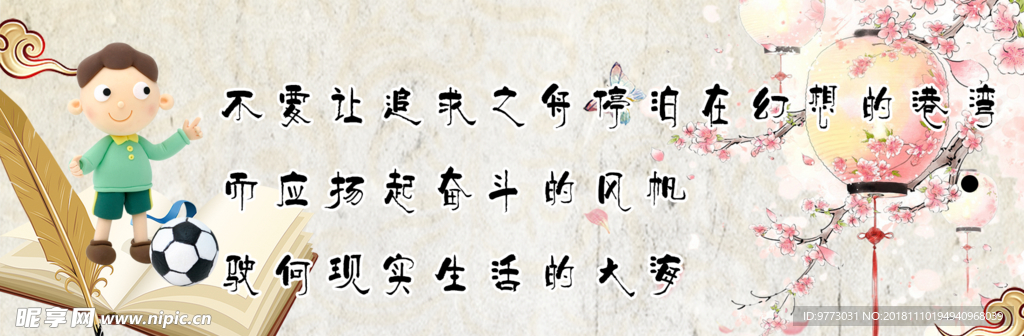 不要让追求之舟停泊在幻想的港湾
而应扬起奋斗的风帆
驶何现实生活的大海
昵享网 www.nipic.cn
ID:9773031 NO:20181110194940968039